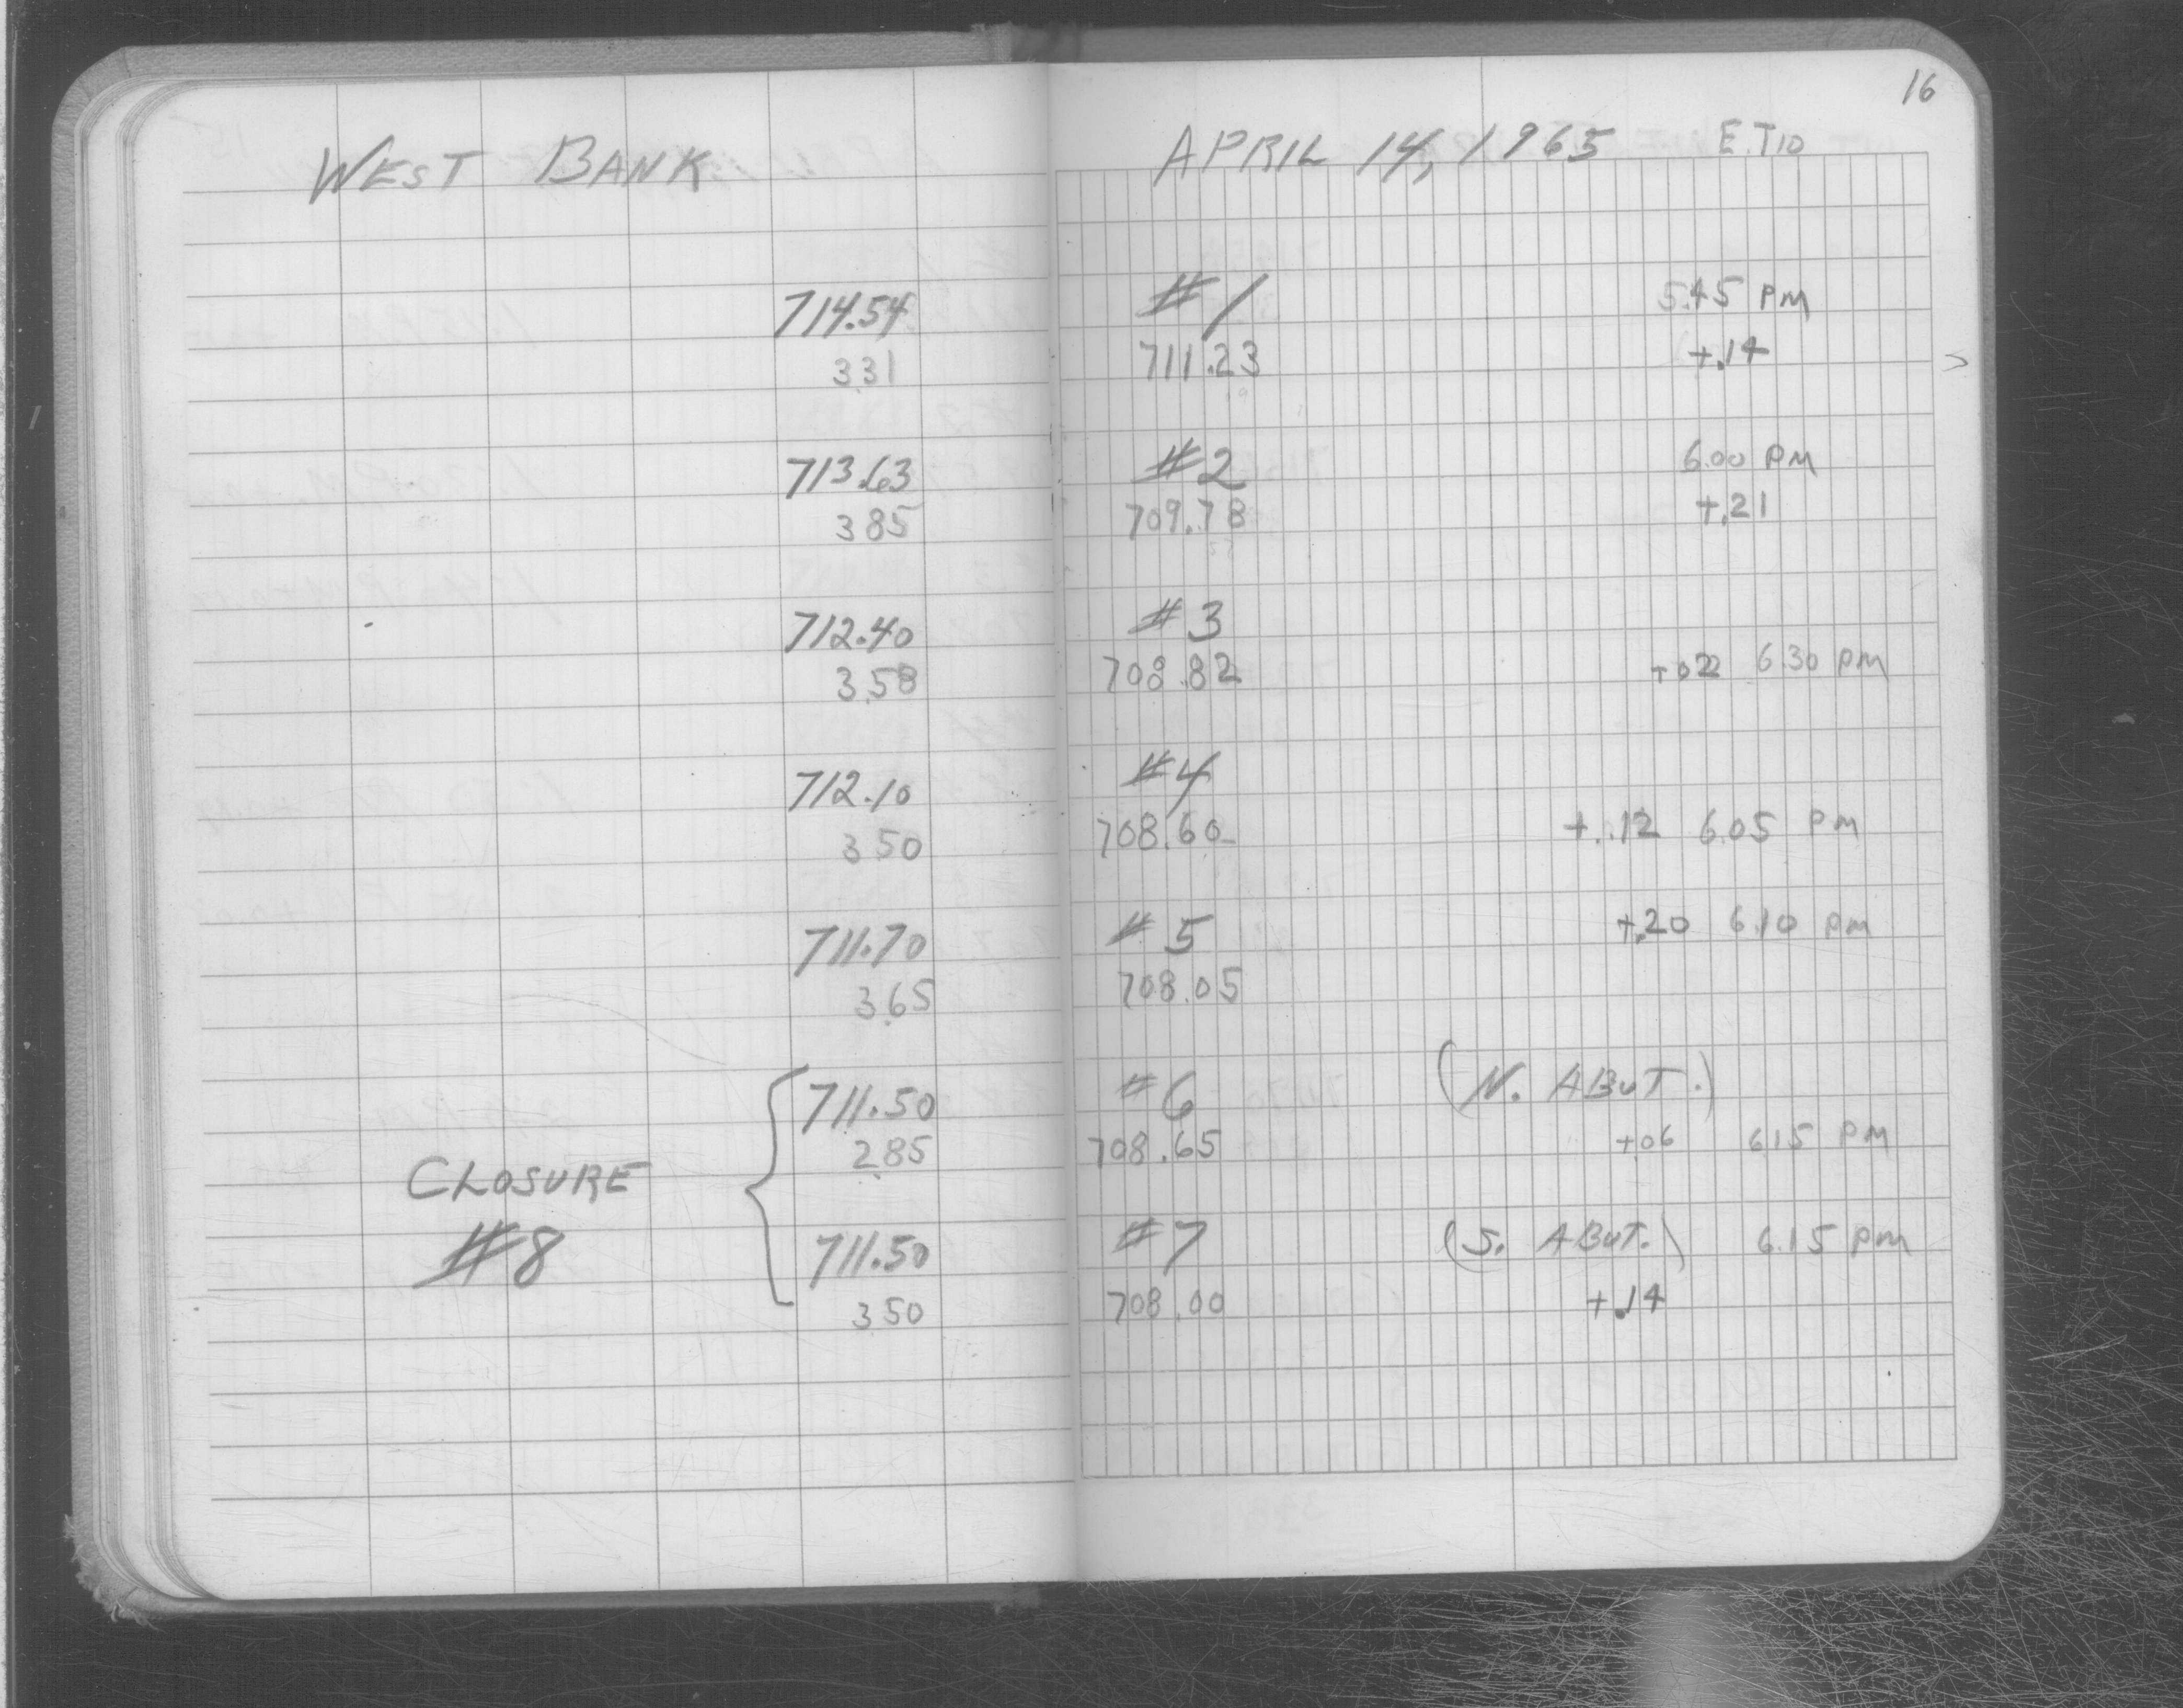 16
WEST BANK APRIL 14, 1965 E. TIO
714.54 #1 5.45 PM
3.31 711.23 +.14
713.63 #2 6.00 PM
3.85 709.78 +.21
712.40 #3
3.58 708.82 +.02 6.30 PM
712.10 #4
3.50 708.60 +.12 6.05 PM
711.70 #5 +.20 6.10 PM
3.65 708.05
711.50 #6 (N. ABUT.)
2.85 708.65 +.06 6.15 PM
CLOSURE
#8
711.50 #7 (S. ABUT.) 6.15 PM
3.50 708.00 +.14